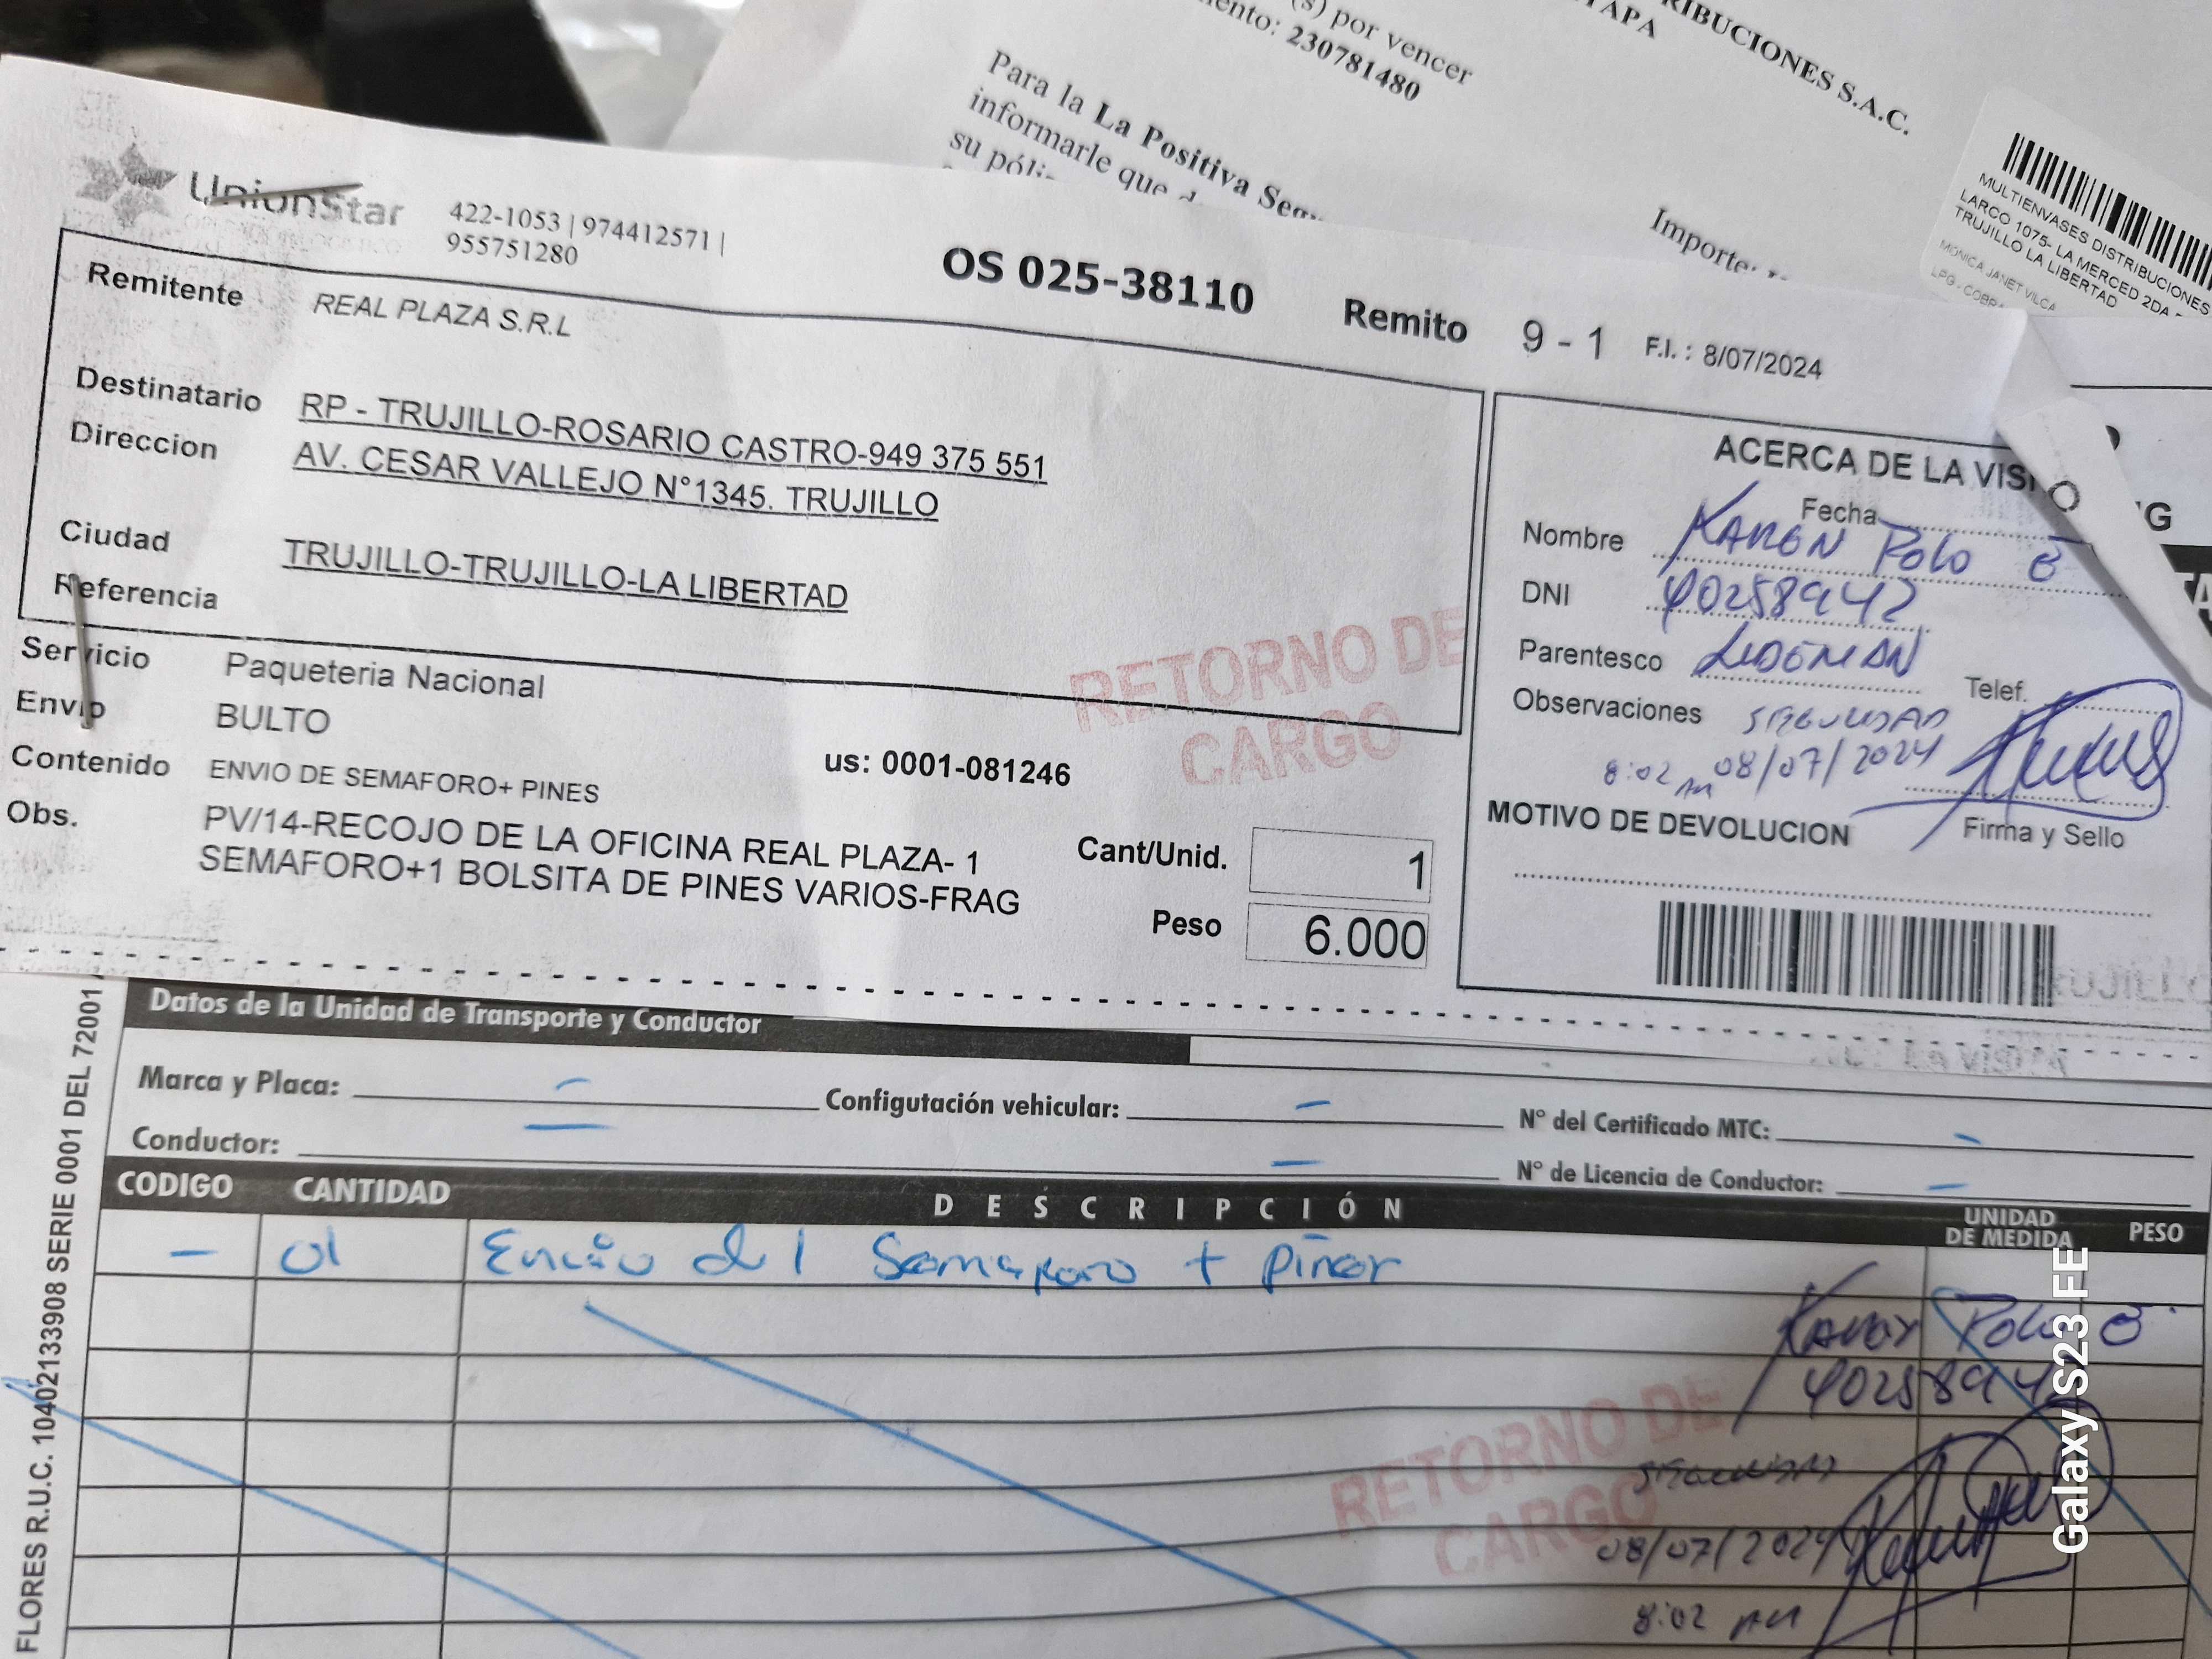 RIBUCIONES S.A.C.
TAPA
(s) por vencer
ento: 230781480
Para la La Positiva Segu
informarle que d
su póli
Importe:
MULTIENVASES DISTRIBUCIONES
LARCO 1075- LA MERCED 2DA
TRUJILLO LA LIBERTAD
MONICA JANET VILCA
LPG - COBRA
UnionStar
422-1053 | 974412571 |
955751280
OS 025-38110 Remito 9 - 1 F.I. : 8/07/2024
Remitente REAL PLAZA S.R.L
Destinatario RP - TRUJILLO-ROSARIO CASTRO-949 375 551
Direccion AV. CESAR VALLEJO N°1345. TRUJILLO
Ciudad TRUJILLO-TRUJILLO-LA LIBERTAD
Referencia
Servicio Paqueteria Nacional
Envio BULTO
Contenido ENVIO DE SEMAFORO+ PINES
us: 0001-081246
Obs. PV/14-RECOJO DE LA OFICINA REAL PLAZA- 1
SEMAFORO+1 BOLSITA DE PINES VARIOS-FRAG
Cant/Unid. 1
Peso 6.000
RETORNO DE
CARGO
ACERCA DE LA VISI
Fecha
Nombre KAREN Polo
DNI 40258942
Parentesco
Telef.
Observaciones
8:02 AM 08/07/2024
Firma y Sello
MOTIVO DE DEVOLUCION
Datos de la Unidad de Transporte y Conductor
Marca y Placa: - Configutación vehicular: - N° del Certificado MTC: -
Conductor: - N° de Licencia de Conductor: -
CODIGO CANTIDAD DESCRIPCIÓN UNIDAD DE MEDIDA PESO
- 01 Envio de 1 Semaforo + pines
Polo
4025894
RETORNO DE
CARGO
08/07/2024
8:02 AM
FLORES R.U.C. 10402133908 SERIE 0001 DEL 72001
Galaxy S23 FE